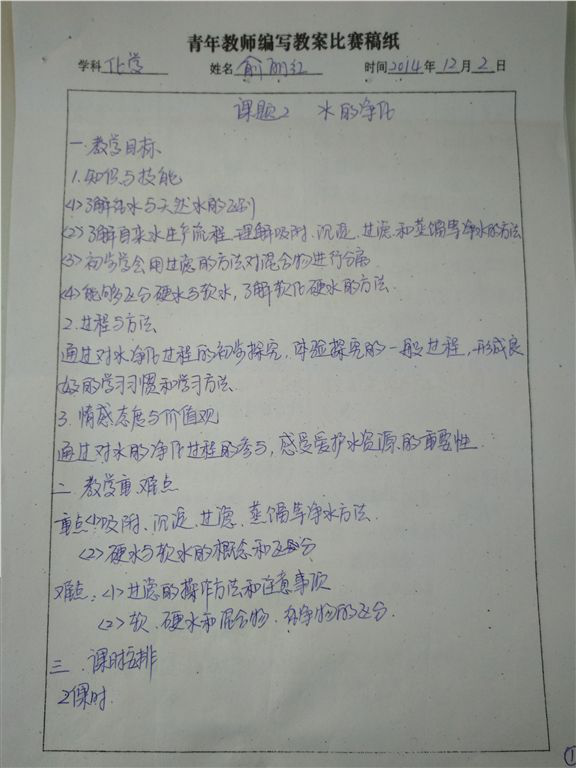 青年教师编写教案比赛稿纸
学科 化学 姓名 俞丽红 时间 2014 年 12 月 2 日
课题2 水的净化
一.教学目标
1.知识与技能
<1>了解纯水与天然水的区别
<2>了解自来水生产流程,理解吸附、沉淀、过滤和蒸馏等净水的方法
<3>初步学会用过滤的方法对混合物进行分离
<4>能够区分硬水与软水,了解软化硬水的方法.
2.过程与方法
通过对水净化过程的初步探究,体验探究的一般过程,形成良
好的学习习惯和学习方法.
3.情感态度与价值观
通过对水的净化过程的参与,感受爱护水资源的重要性.
二.教学重.难点
重点<1>吸附、沉淀、过滤、蒸馏等净水方法.
<2>硬水与软水的概念和区分
难点:<1>过滤的操作方法和注意事项
<2>软、硬水和混合物、纯净物的区分.
三.课时安排
2课时.
①